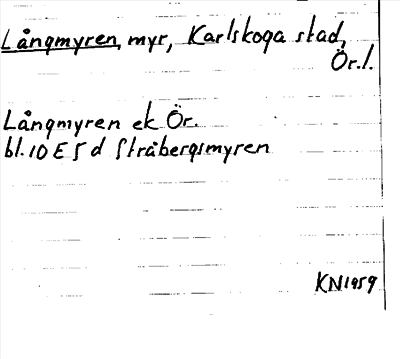 Långmyren, myr, Karlskoga stad,
Ör.l.
Långmyren ek Ör.
bl. 10 E 5 d Stråbergsmyren
KN1959